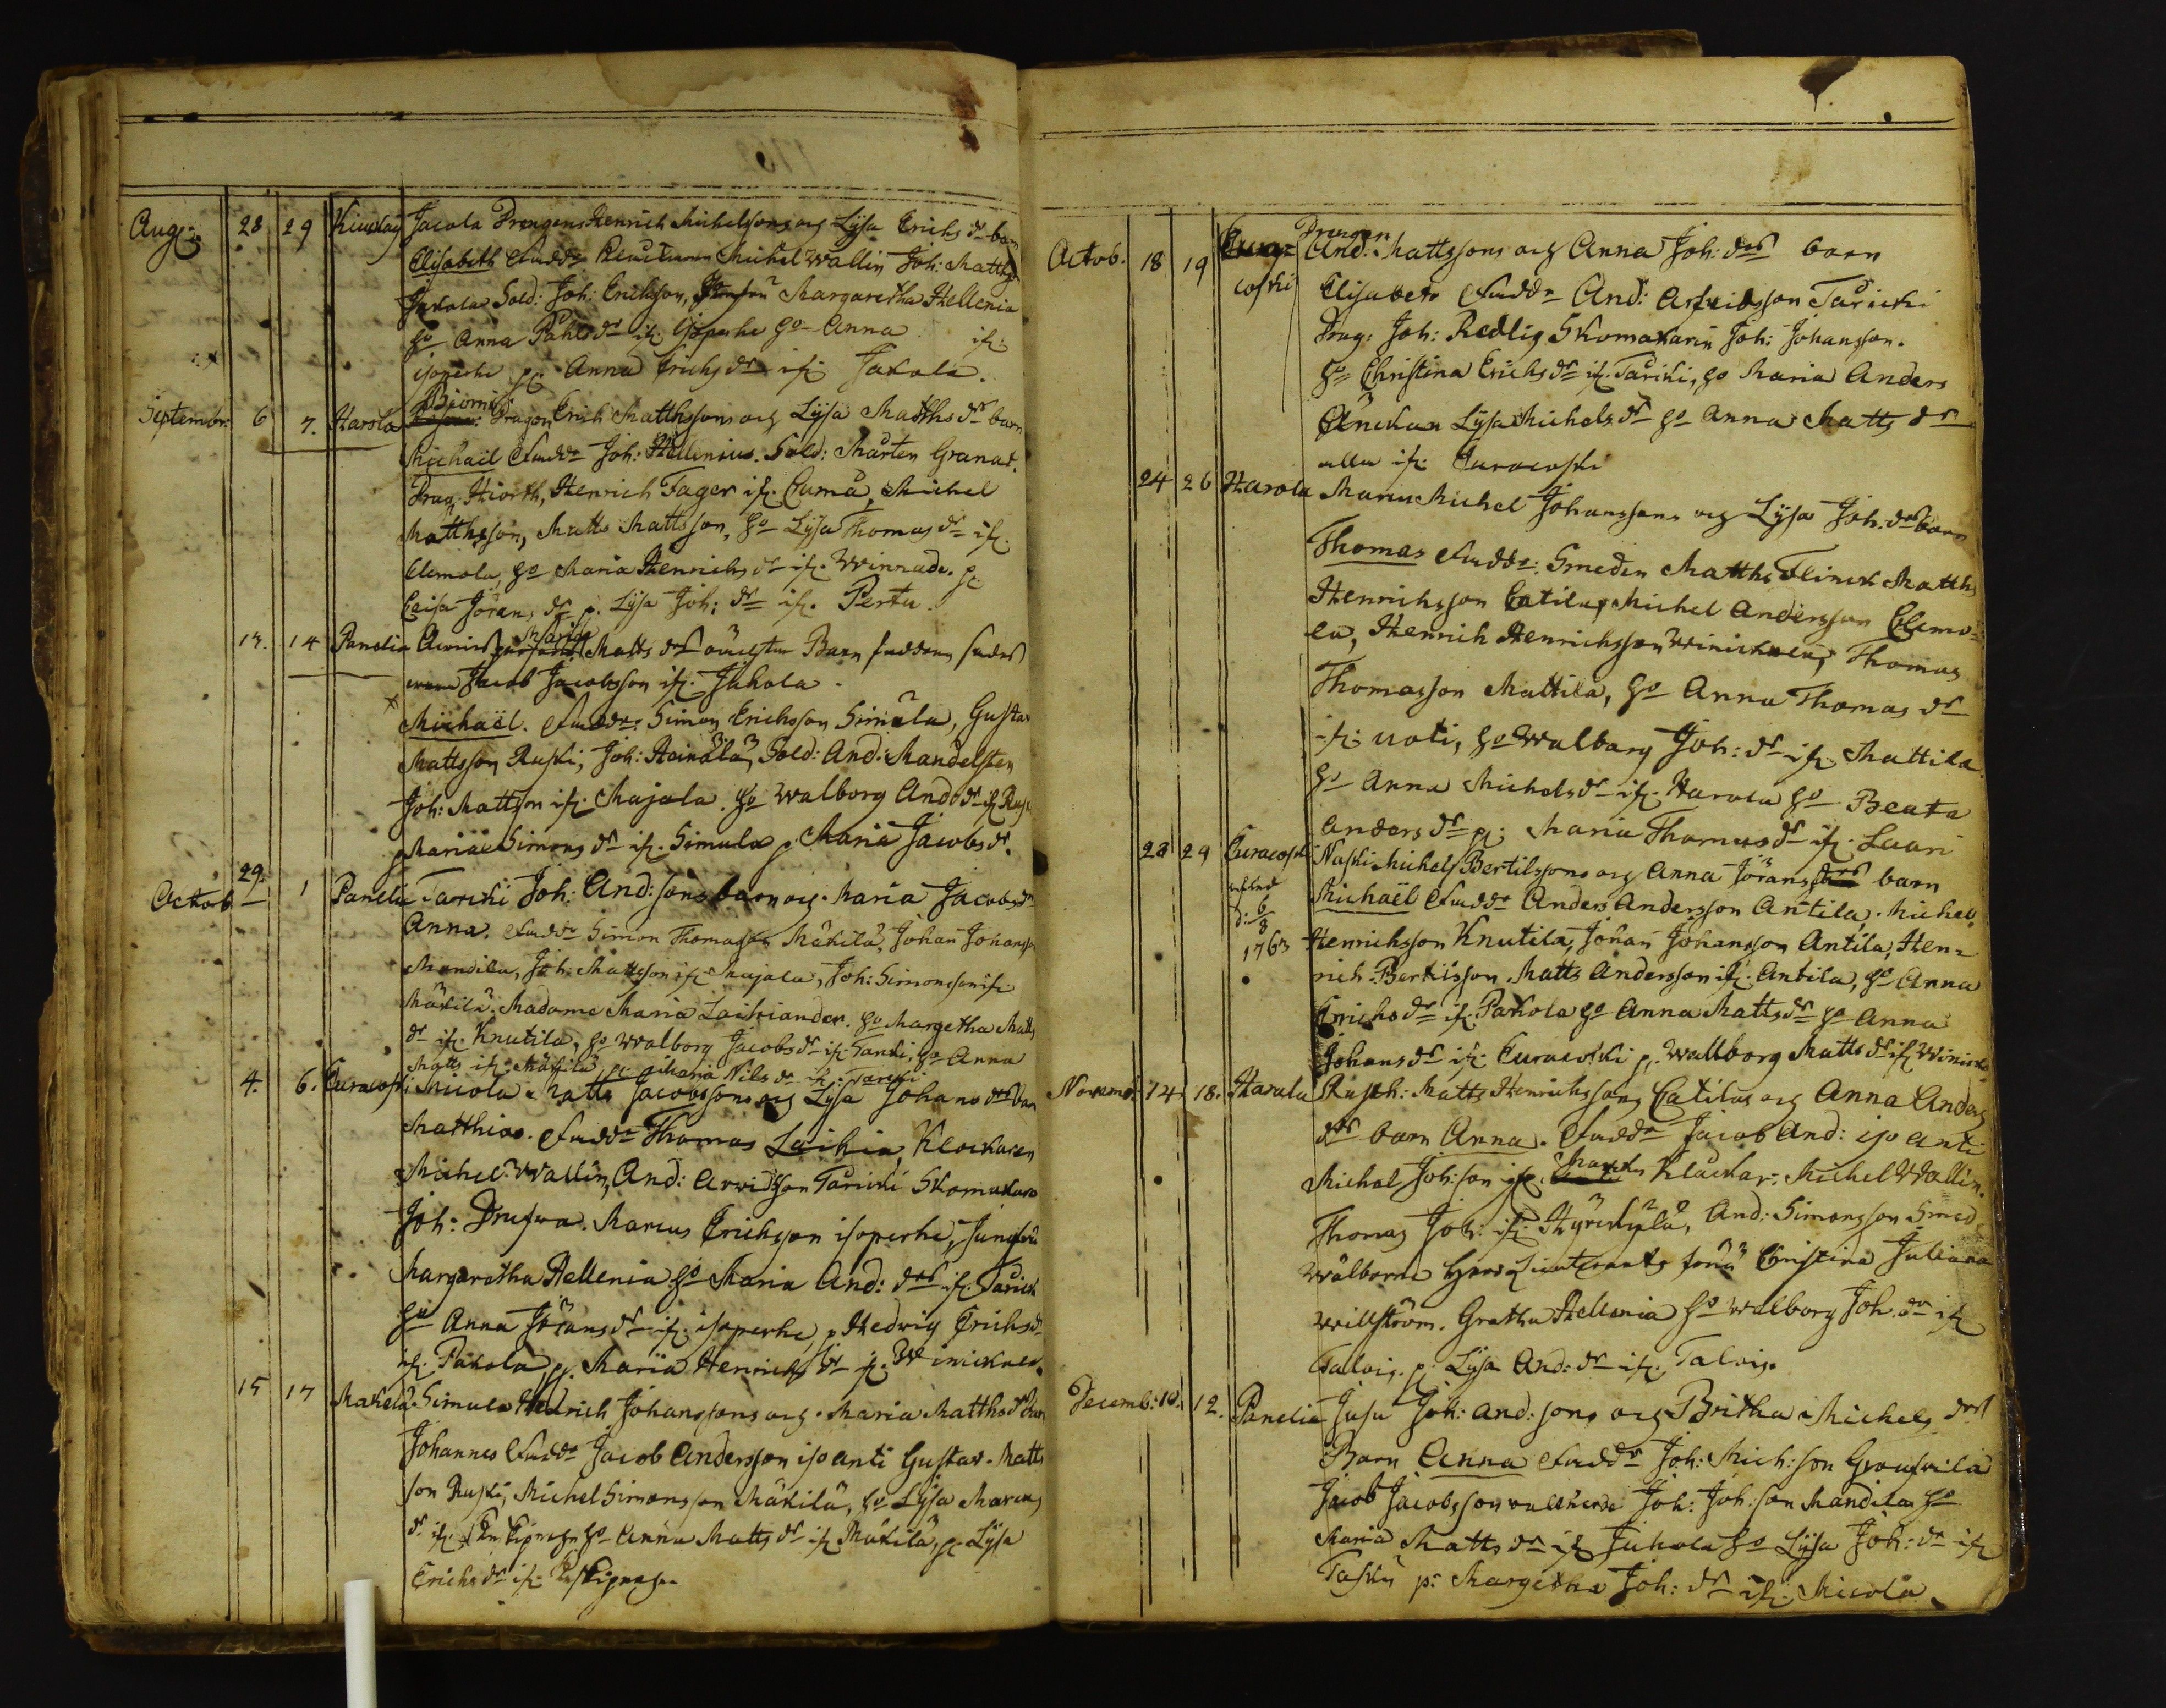 Aug: 28 29 Kiucka Jacola Drengens Henrich Michelsons och Lysa Erichs dr barn
Elisabeth Faddr Michel Wallin Joh: Matths
Jakola Sold: Joh: Erichson, Margaretha Hellenia
ho Anna Påhls dr if: Isoperhe ho Anna if:
isoperhe p: Anna Erichs dr if: Jakola.
Septembr: 6 7. Harola Biörni Dragon Erich Matthssons och Lysa Matths dr barn
Michaël Faddr Joh: Hellenius. Sold: Mårten Granat.
Drag. Hiorth, Henrich Fager if: Cumå, Michel
Matthsson, Matts Mattsson, ho Lysa Thomas dr if:
Clemola, ho Maria Henrichs dr if: Winnada. p:
Caisa Jöran, dr p. Lysa Joh: dr if. Pertu.
13. 14 Panelia Maria Matts drs oächta Barn faddren
Jacob Jacobsson if: Juhola.
x Michaël. Faddr: Simon Erichsson Simula, Gustav
Mattsson Ruski, Joh: Heinälä, Sold: And: Mandelsten
Joh: Mattson if: Majala. ho Walborg And: dr if: Ruski
p Maria Simons dr if. Simula p Maria Jacobs dr.
Octob 29. 1 Panelia Taruki Joh: And: sons barn och Maria Jacobs dr
Anna. Faddr Simon Thomasson Mäkilä, Johan Johansson
Mandila, Joh: Mattsson if: Majala, Joh: Simonsson if:
Mäkilä. Madame Maria Laihiander. ho Margetha Matts
dr if: Knutila, ho Walborg Jacobs dr if: Tanki, ho Anna
Matts if: Mäkilä p: Maria Nils dr if: Taruki
4. 6. Euracoski Micola Matts Jacobssons och Lysa Johans drs barn
Matthias. Faddr Thomas Laihia, Klockaren
Michel Wallin, And: Arvidsson Taruki Skomakare
Joh: Drufva. Marcus Erichsson isoperhe, Jungfru
Margaretha Hellenia ho Maria And: drs if: Taruki
ho Anna Jörans dr if: isoperhe, p Hedwig Erichs dr
if. Pakola, p. Maria Henrichs dr if. Winickaen.
15 17 Makela. Simula Hedrich Johanssons och Maria Matths dr Barn
Johannes Faddr Jacob Andersson iso anti Gustav Matts
son Ruski, Michel Simonsson Mäkilä, ho Lysa Marcus
dr if: ho Anna Matts dr if: Mäkilä, p: Lysa
Erichs dr if:
Octob. 18 19 Eura= Drengen And: Mattssons och Anna Joh: drs barn
coski Elisabeth Faddr And: Arfuidsson Taruki
Drag: Joh: Redlig Skomakarin Joh: Johansson.
ho Christina Erichs dr if: Taruki, ho Maria Anders
Enckan Lysa Michels dr ho Anna Matts dr
alla if: Euracoski
24 26 Harola Manu Michel Johanssons och Lysa Joh: dr barn
Thomas Faddr: Smeden Matths Flinck Matth
Henrichsson Catilus, Michel Andersson Clemo=
la, Henrich Henrichsson Winickala, Thomas
Thomasson Mattila, ho Anna Thomas dr
if: uoti, ho Walborg Joh: dr if: Mattila.
ho Anna Michels dr if: Harola ho Beata
Anders dr p: Maria Thomas dr if: Lauri
28 29 Euracoski Naski Michels Bertilssons och Anna Jörans drs barn
d: 6/8 Michaël Faddr Anders Andersson Antila, Michel
1763 Henrichsson Knutila, Johan Johansson Antila, Hen=
rich Bertilsson. Matts Andersson if: Antila, ho Anna
Erichs dr if: Pakola ho Anna Matts dr ho Anna
Johans dr if: Euracoski p: Wallborg Matts dr if:
Novemb: 14 18. Harala Rusth: Matts Henrichssons Catilus och Anna Anders
drs barn Anna. Faddr Jacob And: iso anti
Michel Joh: son if. Klåckar: Michel Wallin.
Thomas Joh: if: Hyrckylä, And: Simonsson Smed,
Wälborne Herr Lieutenants fru Christina Juliana
Willström. Gretha Hellenia ho Walborg Joh: dr if:
Talvis. p: Lysa And: dr if: Talvis.
Decemb: 10. 12. Panelia Jusu Joh: And: sons och Britha Michels drs
Barn Anna Faddr Joh: Mich: son
Jacob Jacobsson Joh: Joh: son Mandila ho
Maria Matts dr if: Juhola ho Lysa Joh: dr if:
Taskis p: Margetha Joh: dr if: Micola.